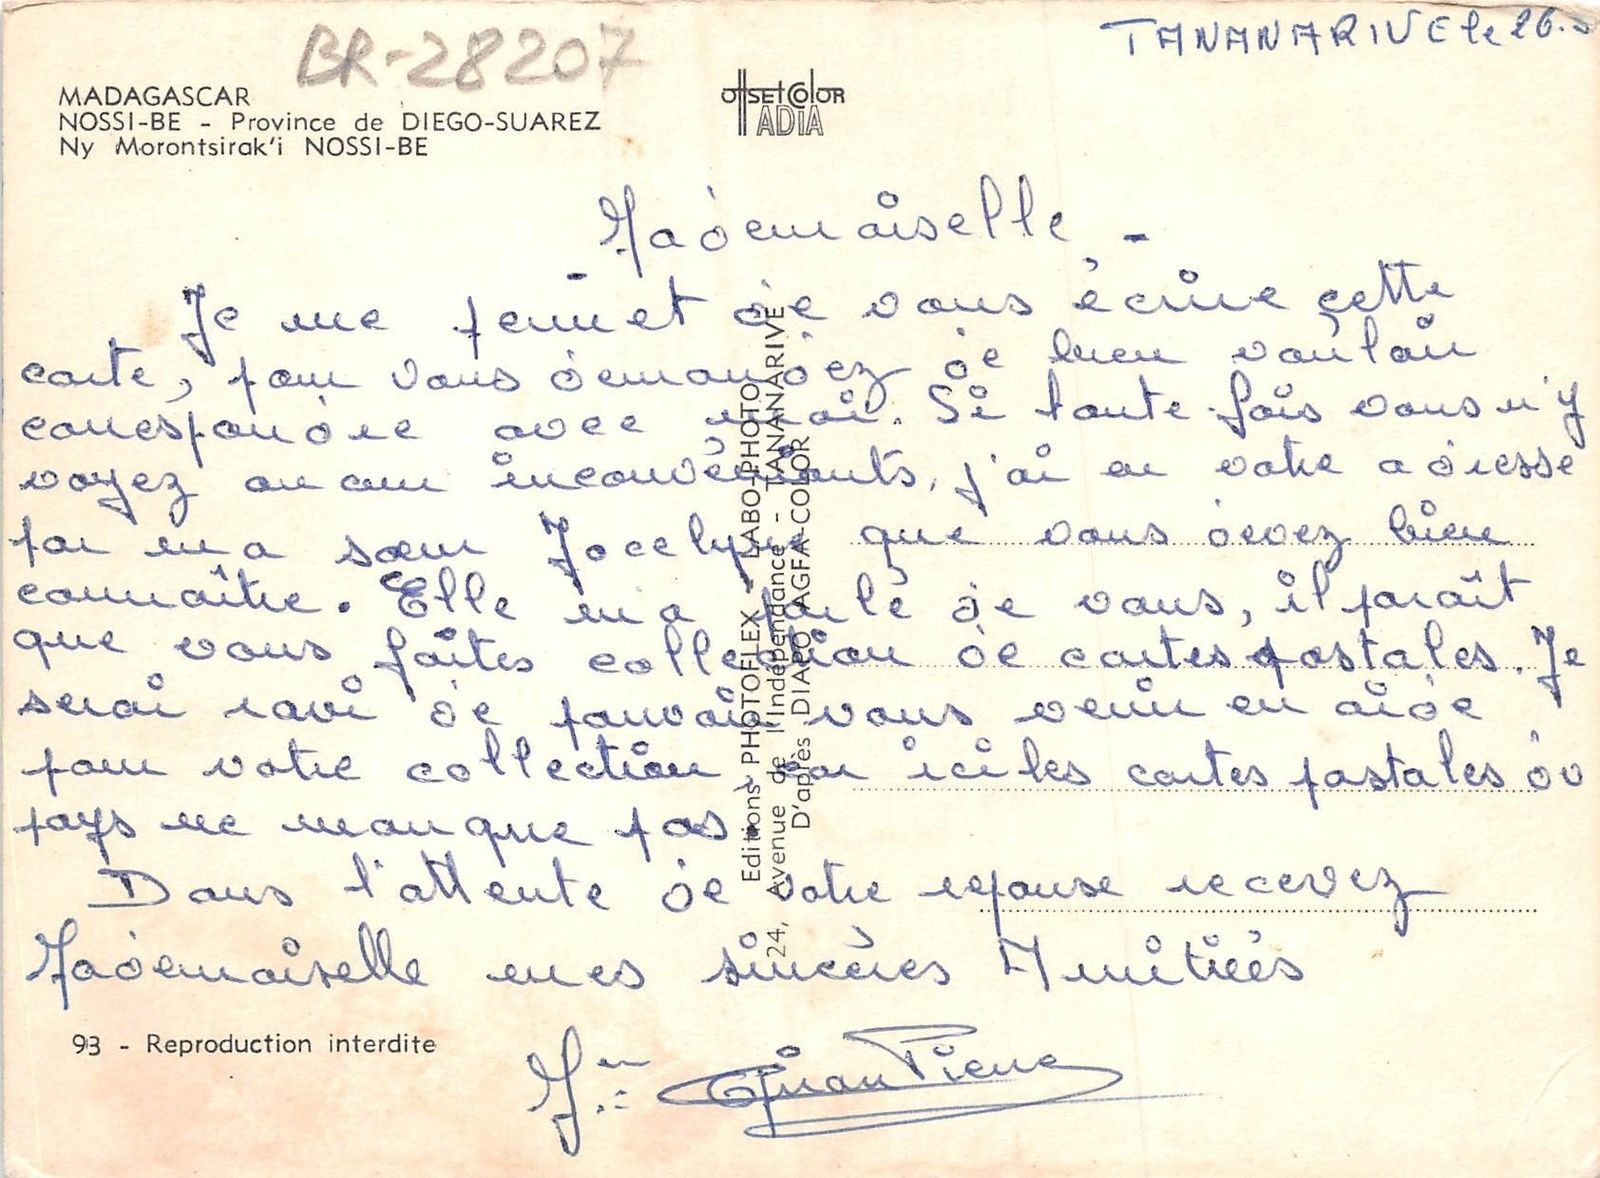 BR-28207
TANANARIVE le 26.
MADAGASCAR
NOSSI-BE - Province de DIEGO-SUAREZ
Ny Morontsirak'i NOSSI-BE
offset Color
ADIA
Mademoiselle -
Je me permet de vous écrire cette
carte, pour vous demandez de bien vouloir
correspondre avec moi. Si toute fois vous n'y
voyez aucun inconvénients, j'ai eu votre adresse
par ma sœur Jocelyne que vous devez bien
connaître. Elle m'a parlé de vous, il paraît
que vous faites collection de cartes postales. Je
serai ravi de pouvoir vous venir en aide
pour votre collection car ici les cartes postales du
pays ne manque pas.
Dans l'attente de votre reponse recevez
Mademoiselle mes sincères Amitiés
93 - Reproduction interdite
Mr: Pierre
Editions PHOTOFLEX - LABO-PHOTO
24, Avenue de l'Indépendance - TANANARIVE
D'après DIAPO AGFA-COLOR